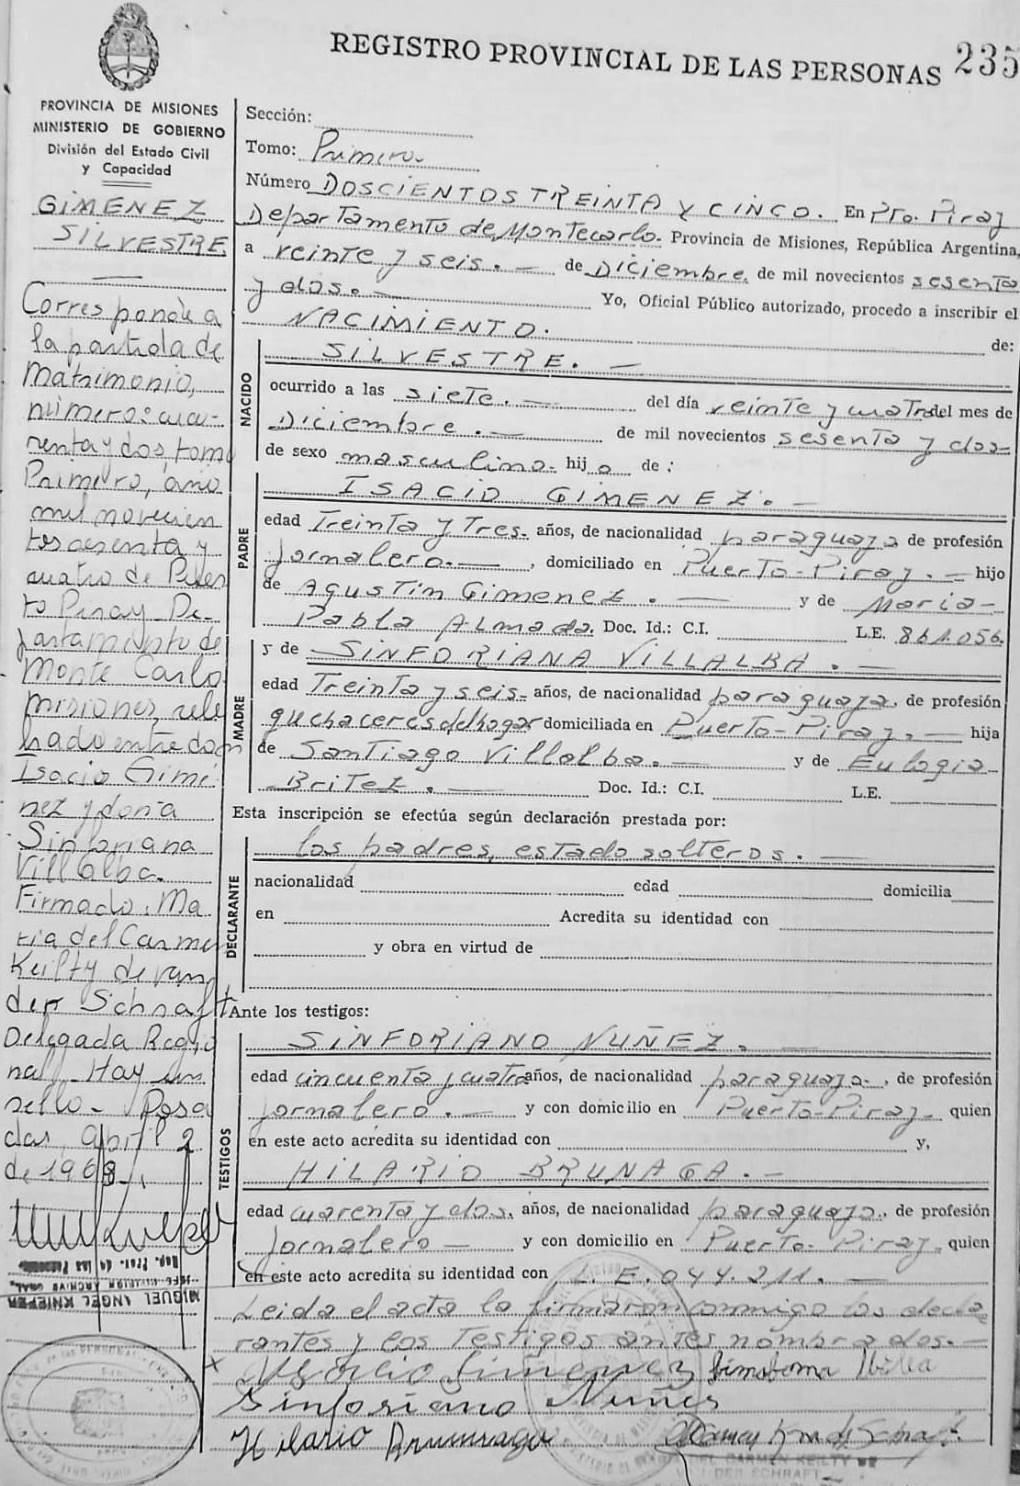 REGISTRO PROVINCIAL DE LAS PERSONAS 235
PROVINCIA DE MISIONES
MINISTERIO DE GOBIERNO
División del Estado Civil
y Capacidad
GIMENEZ
SILVESTRE
Corresponde a
la partida de
Matrimonio,
número: cua-
renta y dos, tomo
Primero, año
mil novecien
tos sesenta y
cuatro de Puer
to Piray De-
partamento de
Monte Carlo
Misiones, cele
brado entre don
Isacio Gimé
nez y doña
Sinforiana
Villalba.
Firmado. Ma
ria del Carmen
Keilty de van
der Schraft
Delegada Regio
nal Hay un
sello - Posa
das, abril 2
de 1968.
Rep. Prov. de las Personas
JEFE DIVISION ARCHIVO GRAL.
MIGUEL ANGEL KNIEPER
Sección:
Tomo: Primero.
Número DOSCIENTOS TREINTA Y CINCO. En Pto. Piray
Departamento de Montecarlo. Provincia de Misiones, República Argentina,
a veinte y seis. de Diciembre. de mil novecientos sesenta
y dos. Yo, Oficial Público autorizado, procedo a inscribir el
NACIMIENTO. de:
NACIDO
SILVESTRE.
ocurrido a las siete. del día veinte y cuatro del mes de
Diciembre. de mil novecientos sesenta y dos-
de sexo masculino- hij o de:
PADRE
ISACIO GIMENEZ.
edad Treinta y Tres. años, de nacionalidad paraguaya de profesión
jornalero. , domiciliado en Puerto-Piray. hijo
de Agustín Gimenez. y de Maria-
Pabla Almada. Doc. Id.: C.I. L.E. 861.056.
MADRE
y de SINFORIANA VILLALBA.
edad Treinta y seis- años, de nacionalidad paraguaya. de profesión
quehaceres del hogar domiciliada en Puerto-Piray. hija
de Santiago Villalba. y de Eulogia
Britez. Doc. Id.: C.I. L.E.
Esta inscripción se efectúa según declaración prestada por:
DECLARANTE
los padres, estado solteros.
nacionalidad edad domicilia
en Acredita su identidad con
y obra en virtud de
Ante los testigos:
TESTIGOS
SINFORIANO NUÑEZ.
edad cincuenta y cuatro años, de nacionalidad paraguaya. , de profesión
jornalero. y con domicilio en Puerto-Piray- quien
en este acto acredita su identidad con y,
HILARIO BRUNAGA.
edad cuarenta y dos. años, de nacionalidad paraguaya., de profesión
jornalero y con domicilio en Puerto-Piray. quien
en este acto acredita su identidad con L.E. 044.211.
Leida el acta la firmaron conmigo los decla
rantes y los testigos antes nombrados.
x Gimenez
Sinforiano Nuñes
Hilario
DEL CARMEN KEILTY DE
VAN DER SCHRAFT